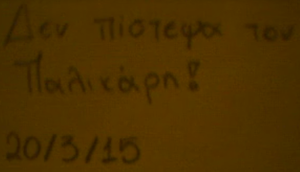 Δεν πιστεψα τον
Παλικάρη!
20/3/15